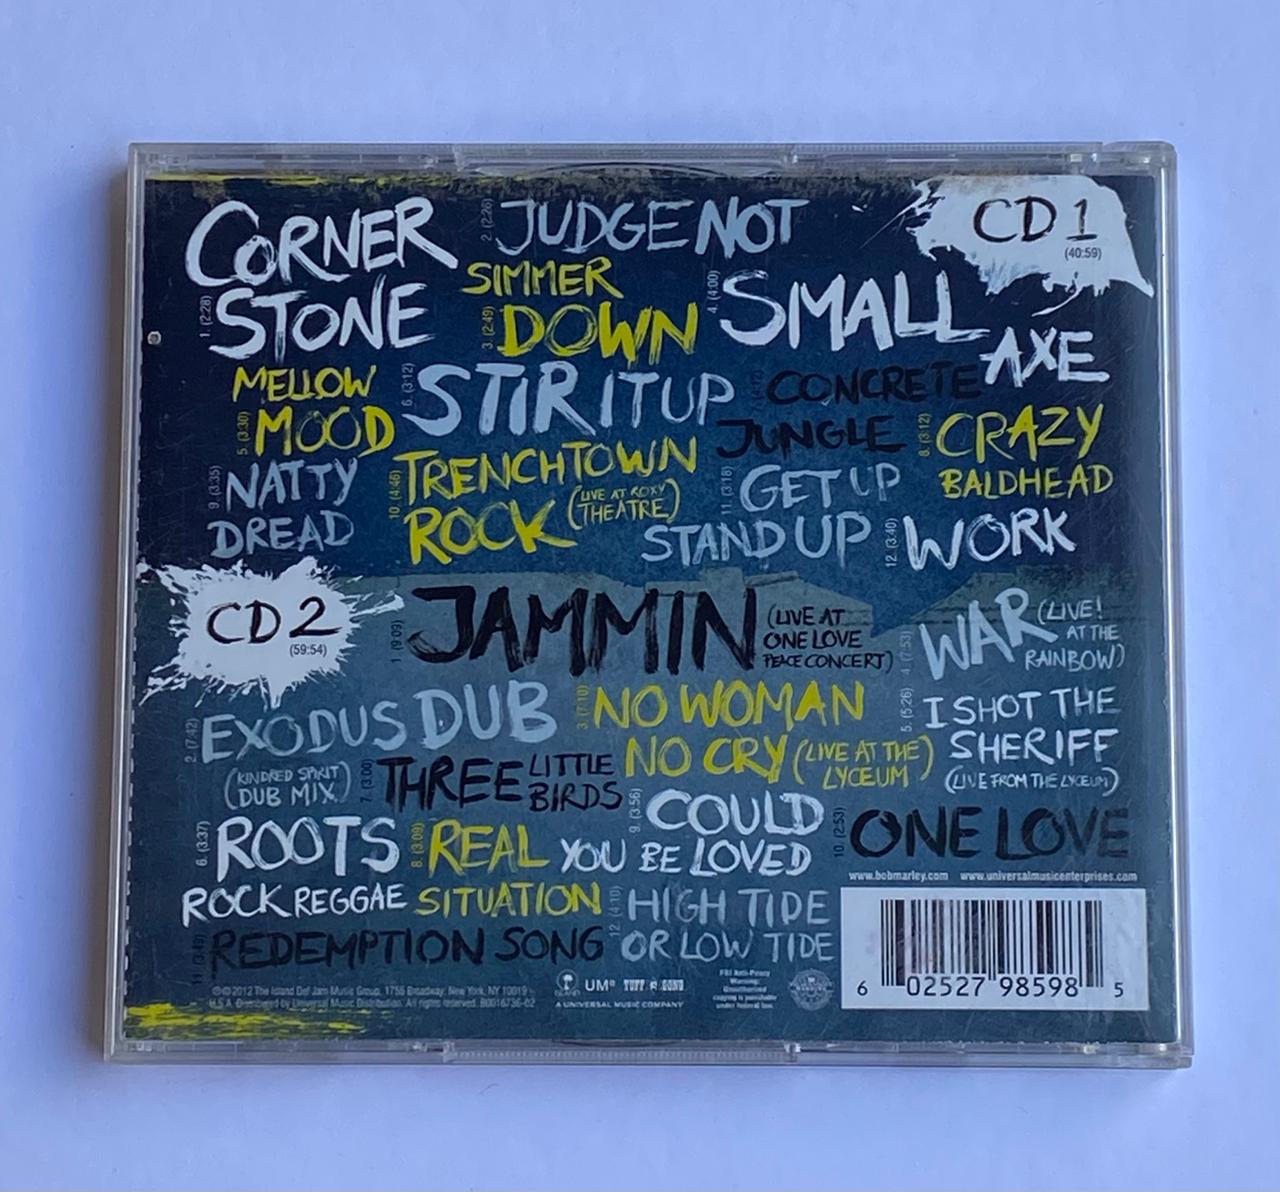 CORNER
STONE
1. (2:28)
2. (2:26)
JUDGE NOT
SIMMER
DOWN
3. (2:49)
CD 1
(40:59)
4. (4:00)
SMALL
AXE
MELLOW
MOOD
5. (3:30)
6. (3:12)
STIR IT UP
CONCRETE
JUNGLE
8. (3:12)
CRAZY
BALDHEAD
9. (3:35)
NATTY
DREAD
10. (4:46)
TRENCHTOWN
ROCK
(LIVE AT ROXY
THEATRE)
11. (3:18)
GET UP
STAND UP
12. (3:40)
WORK
CD 2
(59:54)
1. (9:09)
JAMMIN
(LIVE AT
ONE LOVE
PEACE CONCERT)
2. (7:42)
EXODUS DUB
(KINDRED SPIRIT
DUB MIX)
3. (7:10)
NO WOMAN
NO CRY (LIVE AT THE
LYCEUM)
4. (7:53)
WAR (LIVE!
AT THE
RAINBOW)
5. (5:26)
I SHOT THE
SHERIFF
(LIVE FROM THE LYCEUM)
6. (3:37)
ROOTS
ROCK REGGAE
7. (3:00)
THREE LITTLE
BIRDS
8. (3:09)
REAL
SITUATION
9. (3:56)
COULD
YOU BE LOVED
10. (2:53)
ONE LOVE
11. (3:49)
REDEMPTION SONG
12. (4:10)
HIGH TIDE
OR LOW TIDE
www.bobmarley.com www.universalmusicenterprises.com
℗© 2012 The Island Def Jam Music Group, 1755 Broadway, New York, NY 10019 -
U.S.A. Distributed by Universal Music Distribution. All rights reserved. B0016736-02
ISLAND
UMe
TUFF GONG
A UNIVERSAL MUSIC COMPANY
FBI Anti-Piracy
Warning:
Unauthorized
copying is punishable
under federal law.
6 02527 98598 5